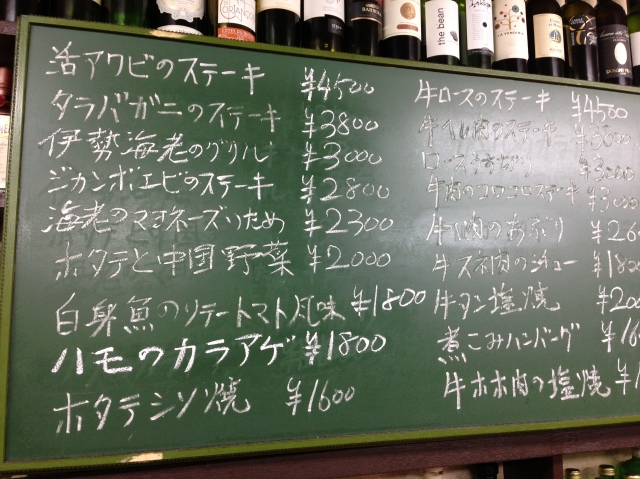 活アワビのステーキ ¥4500
タラバガニのステーキ ¥3800
伊勢海老のグリル ¥3000
ジャンボエビのステーキ ¥2800
海老のマヨネーズいため ¥2300
ホタテと中国野菜 ¥2000
白身魚のソテートマト風味 ¥1800
ハモのカラアゲ ¥1800
ホタテシソ焼 ¥1600
牛ロースのステーキ ¥4500
牛ヒレ肉のステーキ
ロース ¥3000
牛肉のコロコロステーキ ¥3000
牛肉のあぶり
牛スネ肉のシチュー
牛タン塩焼
煮こみハンバーグ
牛ホホ肉の塩焼
the bean